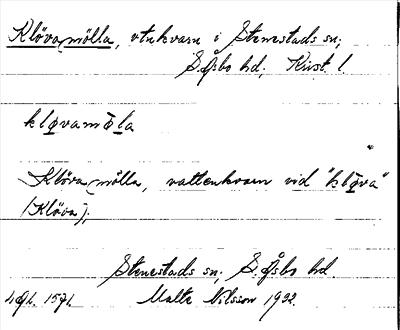 Klöva mölla, vtnkvarn i Stenestads sn;
S. Åsbo hd, Krist. l.
kløvamøla
"
Klöva mölla, vattenkvarn vid "kløva"
(Klöva).
Stenestads sn, S. Åsbo hd.
Malte Nilsson 1922.